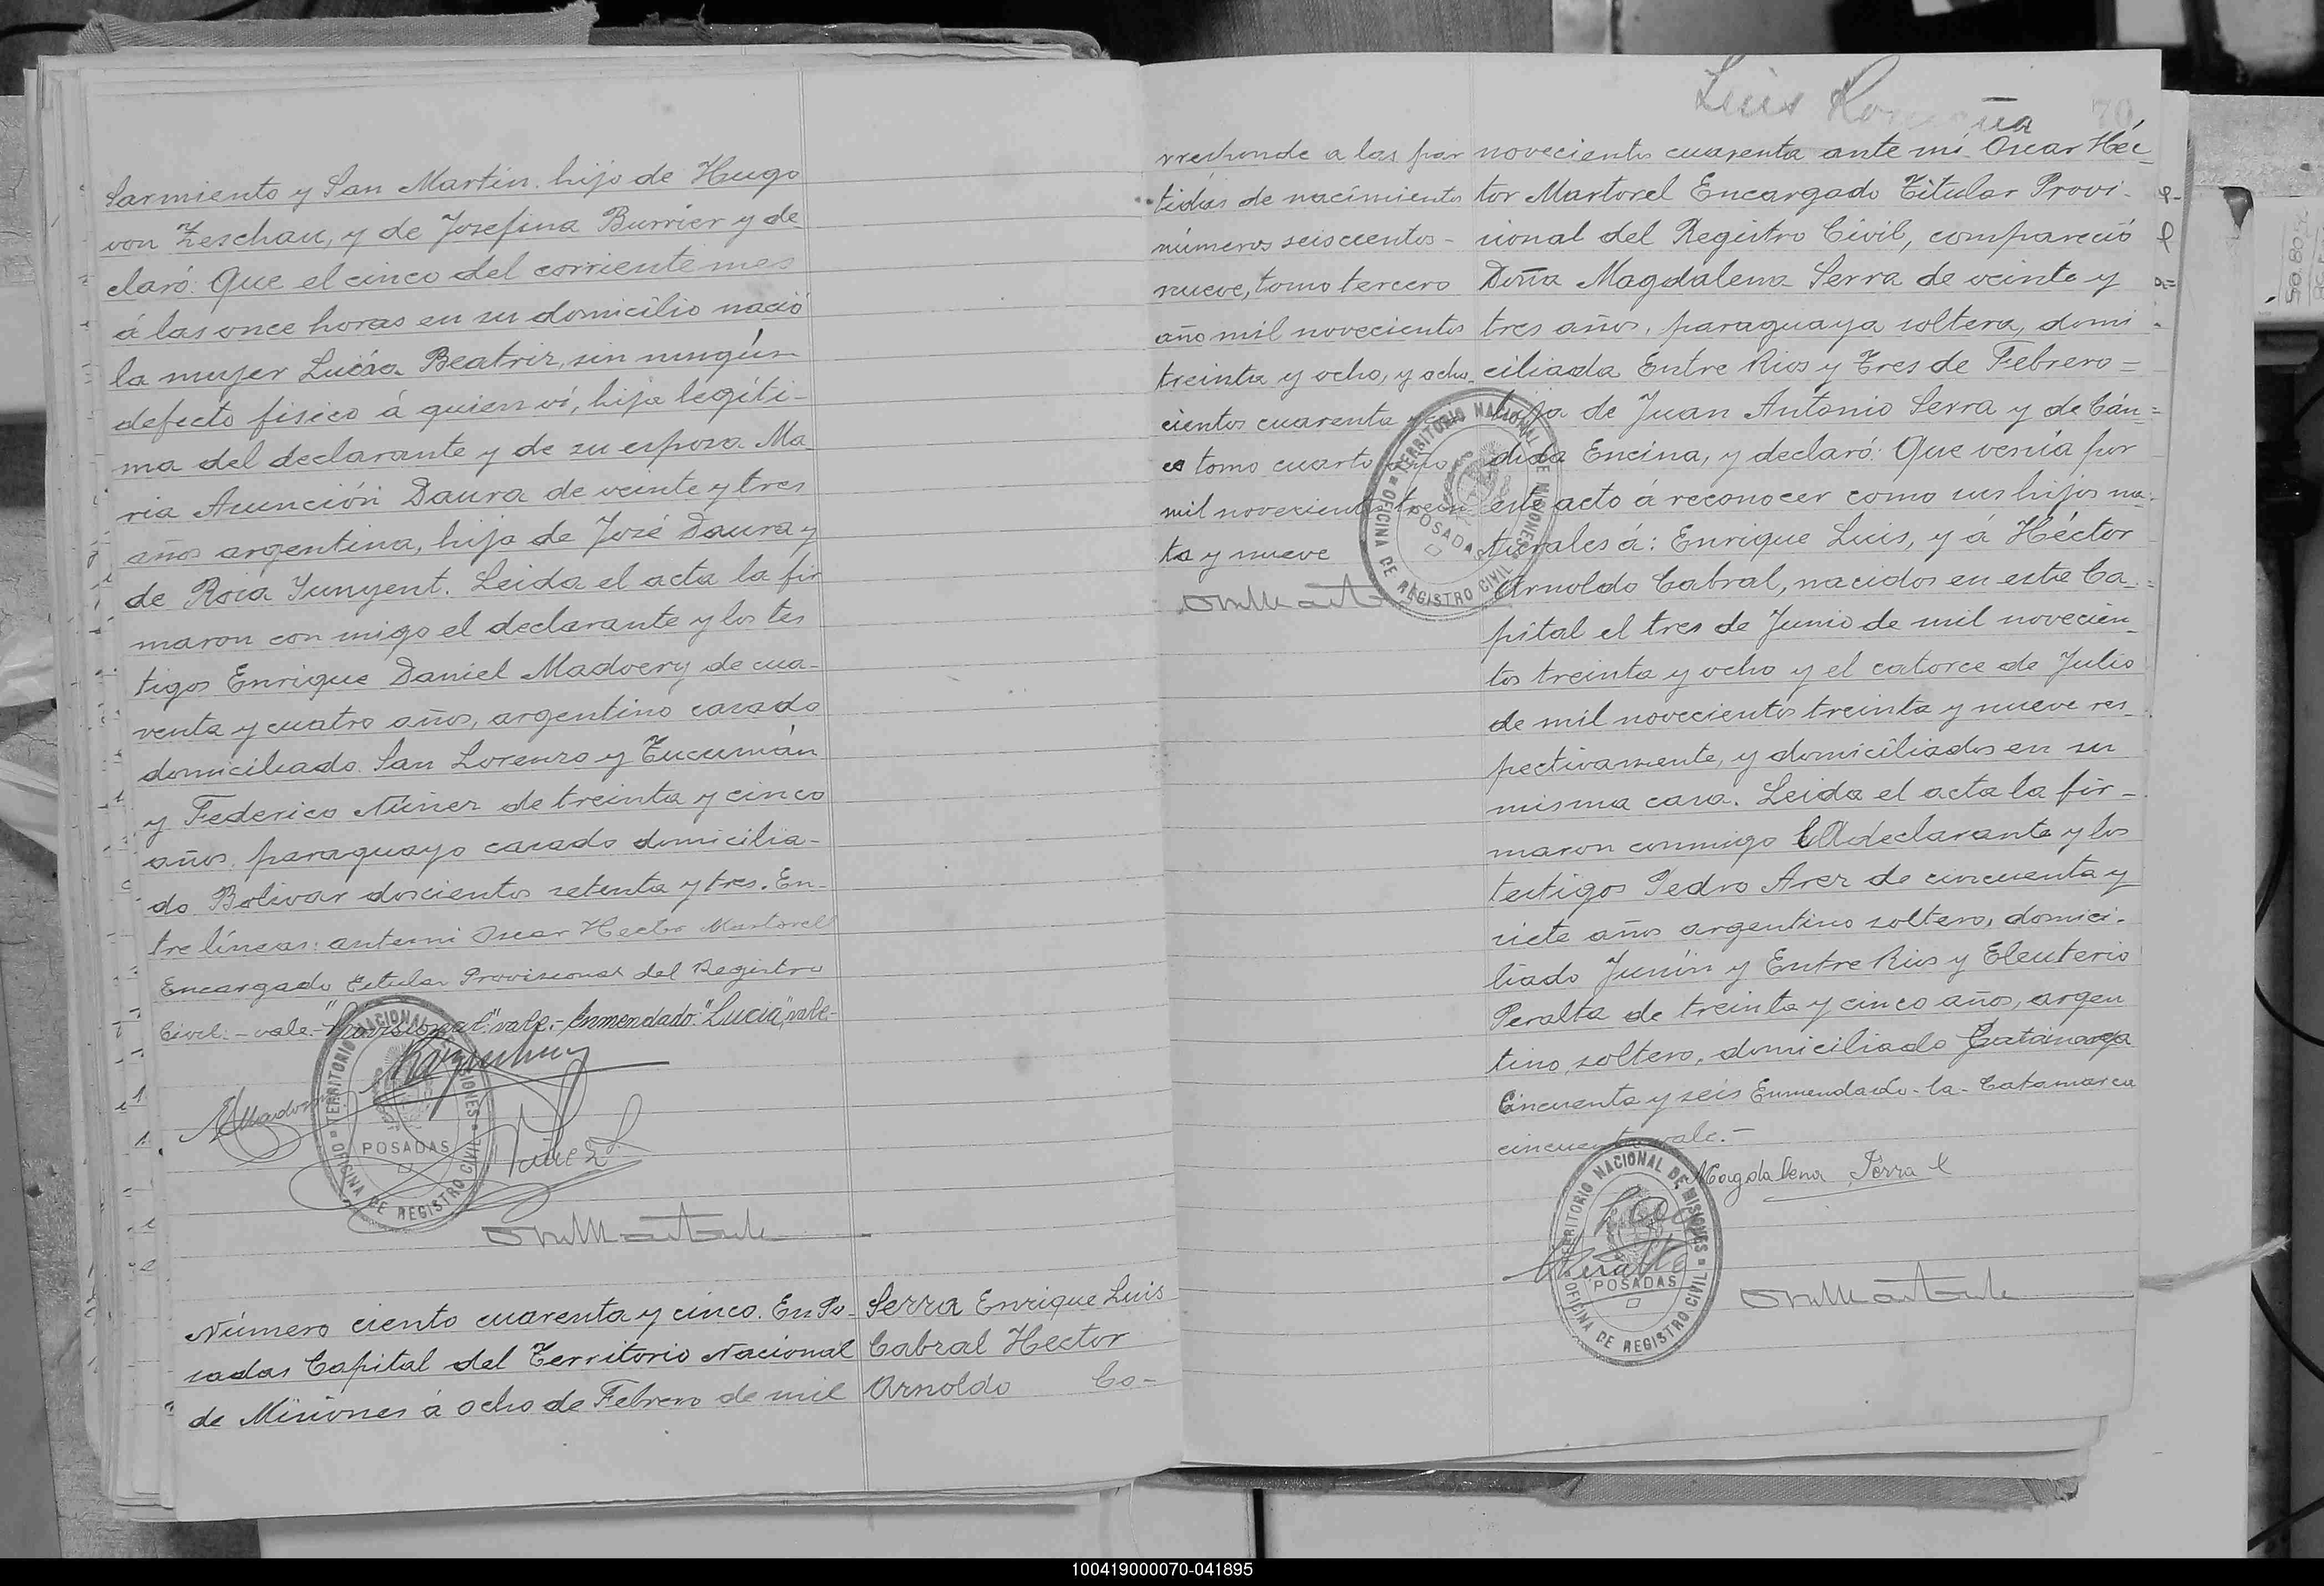 Sarmiento y San Martin. hijo de Hugo
von Zeschau, y de Josefina Burrier y de
claró: Que el cinco del corriente mes
á las once horas en su domicilio nació
la mujer Lucía Beatriz, sin ningún
defecto fisico á quien ví, hija legíti-
ma del declarante y de su esposa Ma
ria Asunción Daura de veinte y tres
años argentina, hija de José Daura y
de Rosa Junyent. Leida el acta la fir
maron con migo el declarante y los tes
tigos Enrique Daniel Madvery de cua-
renta y cuatro años, argentino casado
domiciliado San Lorenzo y Tucumán
y Federico Núñez de treinta y cinco
años, paraguayo casado domicilia-
do Bolivar doscientos setenta y tres. En-
tre líneas: ante mi Oscar Hector Martorell
Encargado Titular Provisional del Registro
Civil. - vale. - "Provisional" vale. - Enmendado: "Lucia", vale -
TERRITORIO NACIONAL DE MISIONES
POSADAS
OFICINA DE REGISTRO CIVIL
Número ciento cuarenta y cinco. En Po-
sadas Capital del Territorio Nacional
de Misiones á ocho de Febrero de mil
Serra Enrique Luis
Cabral Hector
Arnoldo Co-
Luis
70
rresponde a las par
tidas de nacimiento
números seiscientos -
nueve, tomo tercero
año mil novecientos
treinta y ocho, y ocho
cientos cuarenta y
tomo cuarto año
mil novecientos trein
ta y nueve
TERRITORIO NACIONAL DE MISIONES
POSADAS
OFICINA DE REGISTRO CIVIL
novecientos cuarenta ante mí Oscar Héc-
tor Martorel Encargado Titular Provi-
sional del Registro Civil, compareció
Doña Magdalena Serra de veinte y
tres años, paraguaya soltera, domi
ciliada Entre Rios y Tres de Febrero =
hija de Juan Antonio Serra y de Cán=
dida Encina, y declaró: Que venía por
este acto á reconocer como sus hijos na-
turales á: Enrique Luis, y á Héctor
Arnoldo Cabral, nacidos en esta Ca=
pital el tres de Junio de mil novecien-
tos treinta y ocho y el catorce de Julio
de mil novecientos treinta y nueve res-
pectivamente, y domiciliados en su
misma casa. Leida el acta la fir-
maron conmigo la declarante y los
testigos Pedro Arez de cincuenta y
siete años argentino soltero, domici-
liado Junín y Entre Rios y Eleuterio
Peralta de treinta y cinco años, argen
tino, soltero, domiciliado Catamarca
Cincuenta y seis Enmendado - la - Catamarca
cincuenta vale. -
Magdalena Serra
TERRITORIO NACIONAL DE MISIONES
Peralta
POSADAS
OFICINA DE REGISTRO CIVIL
100419000070-041895